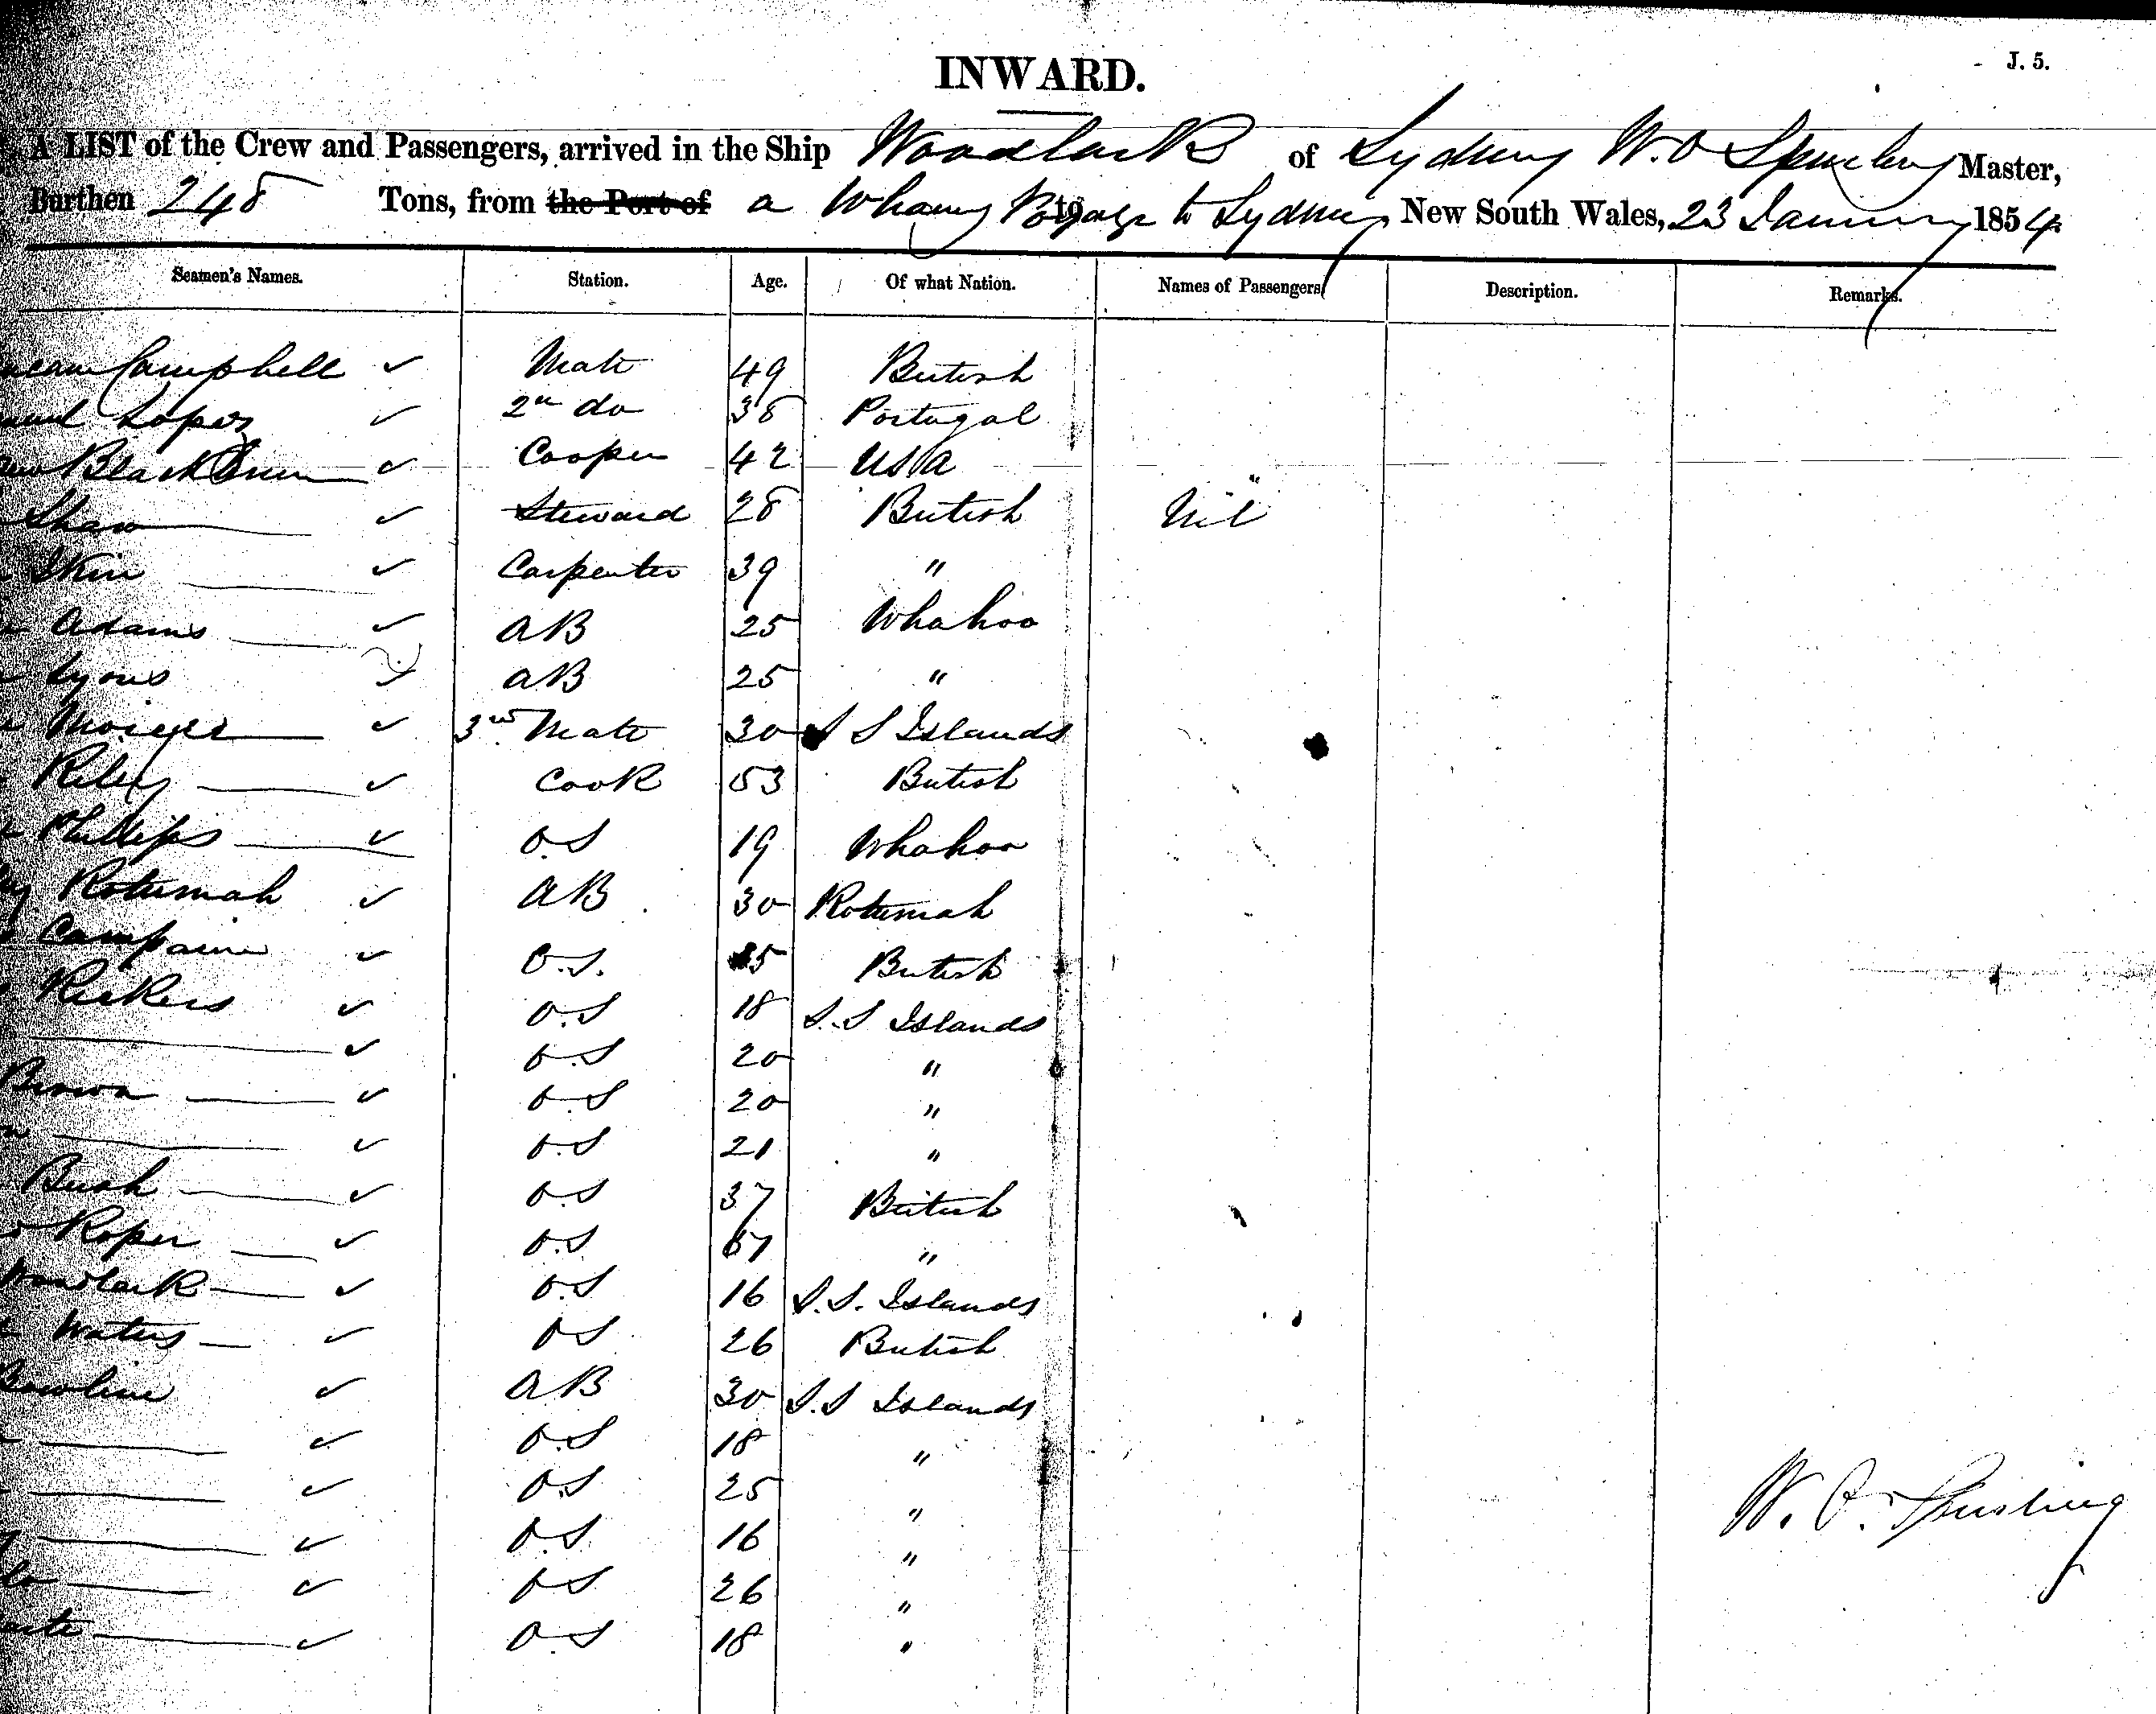 INWARD.
J. 5.
A LIST of the Crew and Passengers, arrived in the Ship Woodlark of Sydney W. O Spurling Master,
Burthen 248 Tons, from the Port of a Whaling Voyage to to Sydney, New South Wales, 23 January 1854
Seamen's Names. Station. Age. Of what Nation. Names of Passengers. Description. Remarks.
Campbell ✓ Mate 49 British
Lopez ✓ 2nd do 38 Portugal
Blackburn ✓ Cooper 42 USA
Shaw ✓ Steward 28 British Nil
Skin ✓ Carpenter 39 "
Adams ✓ AB 25 Whahoo
Lyons AB 25 "
✓ 3rd Mate 30 S S Islands
Riley ✓ Cook 53 British
Phillips ✓ O.S 19 Whahoo
Rotumah ✓ AB 30 Rotumah
Campaine ✓ O.S. 35 British
Rickers ✓ O.S 18 S.S Islands
✓ O.S 20 "
Brown ✓ O.S 20 "
✓ O.S 21 "
Bush ✓ O.S 37 British
Roper ✓ O.S "
Woodlark ✓ O.S 16 S.S. Islands
Waters ✓ OS 26 British
Bowline ✓ AB 30 S.S Islands
✓ O.S 18 "
✓ O.S 25 "
✓ O.S 16 "
✓ O.S 26 "
✓ O.S 18 "
W. O. Spurling